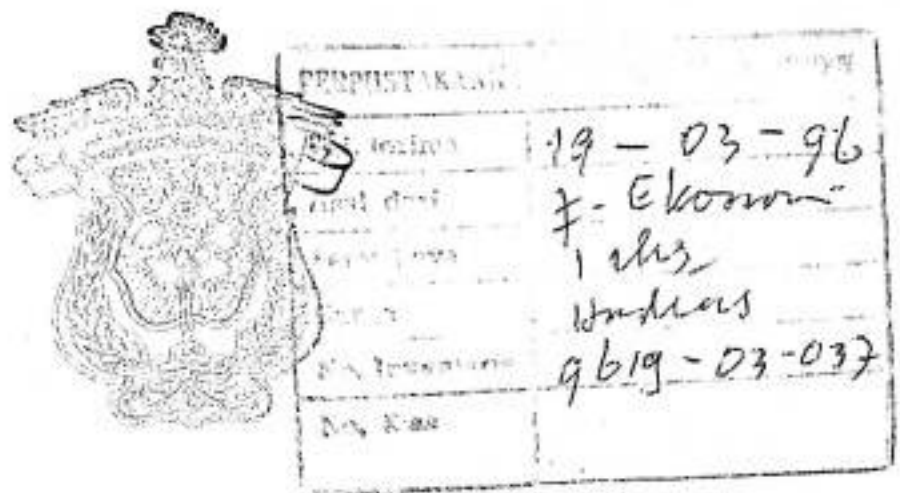 PERPUSTAKAAN
Tgl. terima 19 - 03 - 96
Asal dari F. Ekonomi
1 eks
Hadiah
No. Inventaris 9619 - 03 - 037
No. Klas